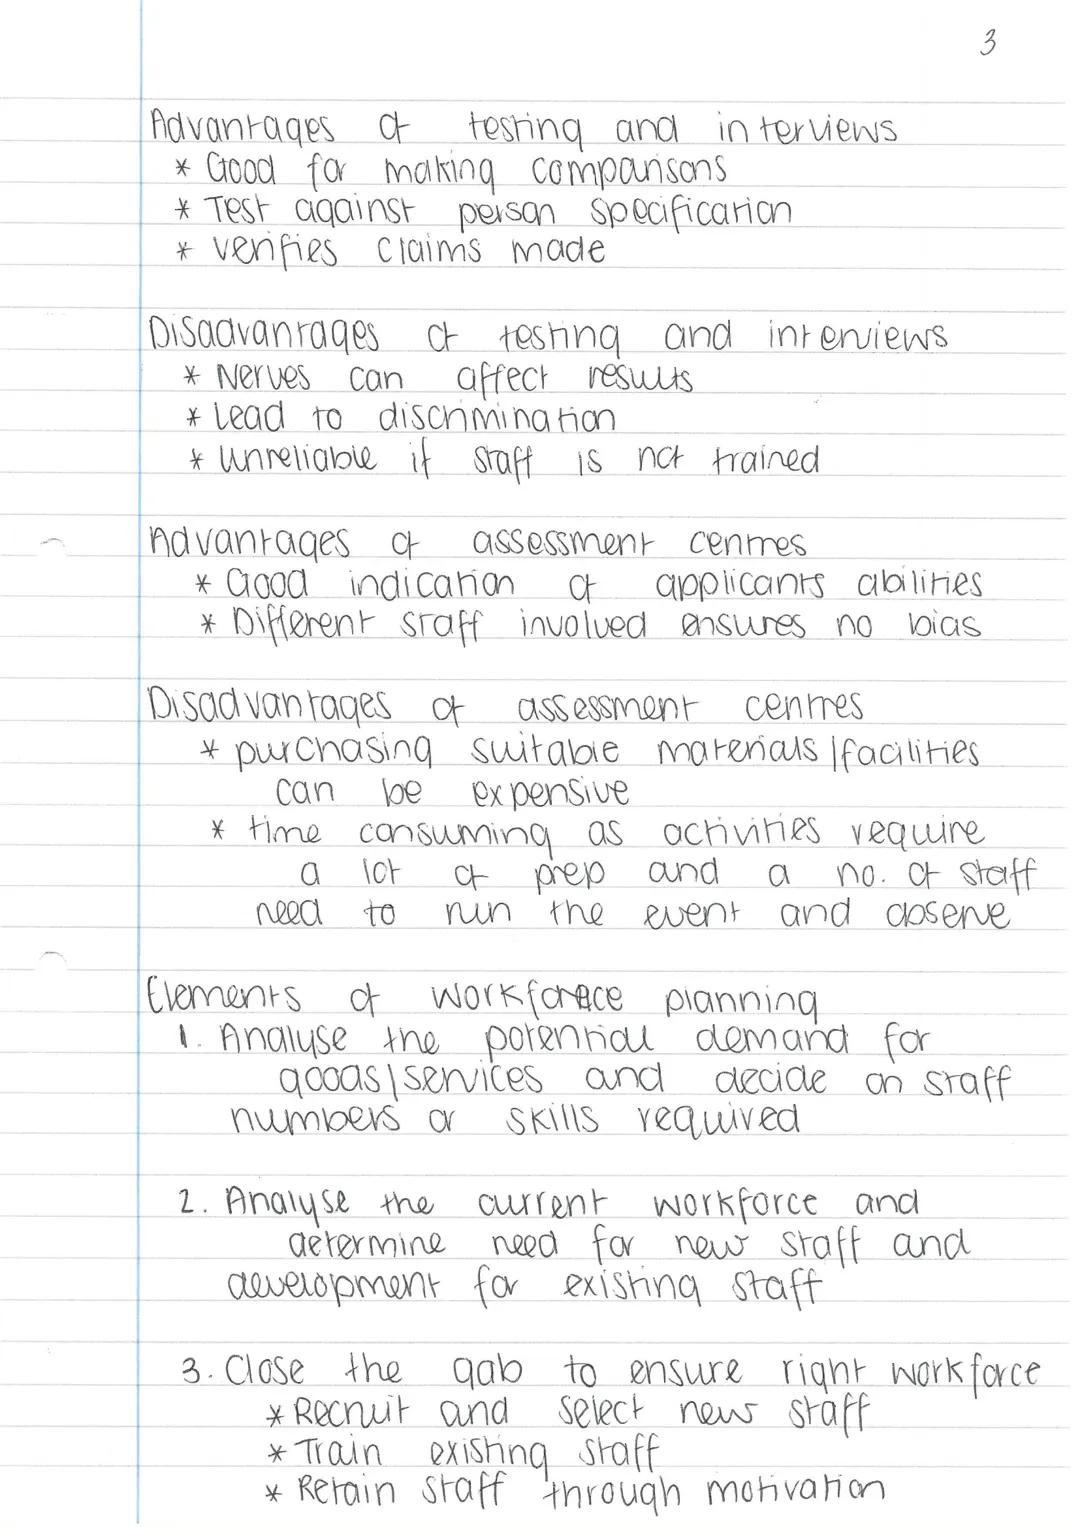 3
Advantages of testing and interviews
* Good for making comparisons
* Test against person specification
* verifies claims made
Disadvantages of testing and interviews
* Nerves can affect results
* Lead to discrimination
* Unreliable if staff is not trained
Advantages of assessment centres
* Good indication of applicants abilities
* Different staff involved ensures no bias
Disadvantages of assessment centres
* purchasing suitable materials/facilities
can be expensive
* time consuming as activities require
a lot of prep and a no. of staff
need to run the event and observe
Elements of workforce planning
1. Analyse the potential demand for
goods/services and decide on staff
numbers or skills required
2. Analyse the current workforce and
determine need for new staff and
development for existing staff
3. Close the gab to ensure right workforce
* Recruit and select new staff
* Train existing staff
* Retain staff through motivation